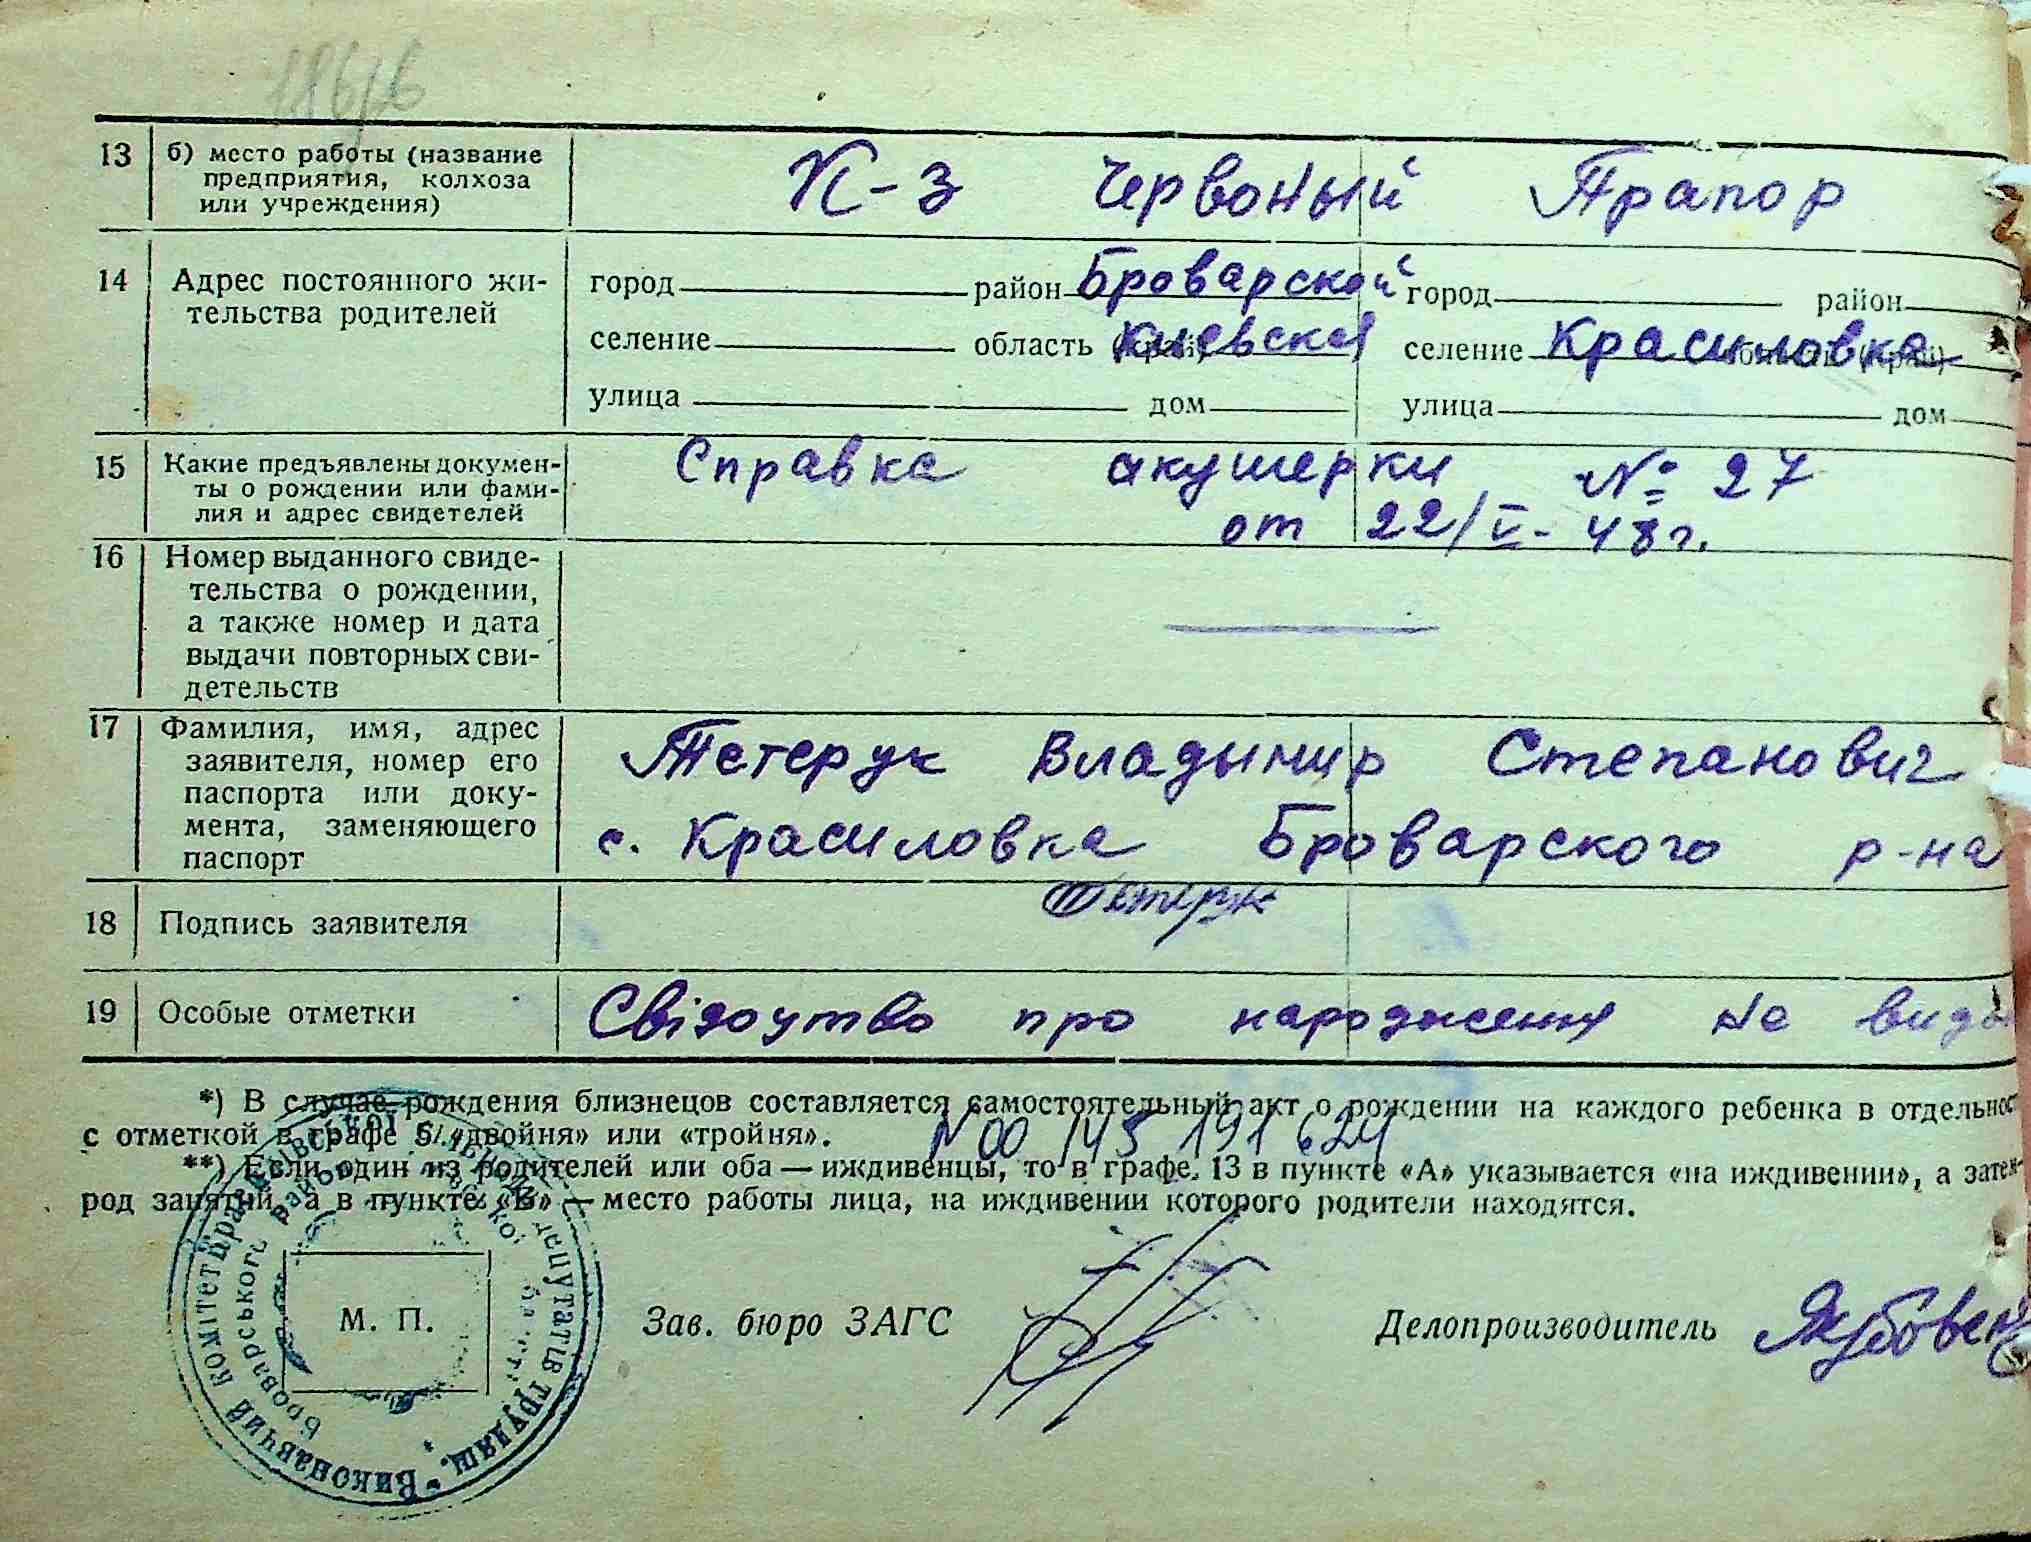 13 б) место работы (название
предприятия, колхоза
или учреждения)
К-з Червоный Прапор
14 Адрес постоянного жи-
тельства родителей
город район Броварской город район
селение область Киевская селение Красиловка
улица дом улица дом
15 Какие предъявлены докумен-
ты о рождении или фами-
лия и адрес свидетелей
Справка акушерки № 27
от 22/V-48г.
16 Номер выданного свиде-
тельства о рождении,
а также номер и дата
выдачи повторных сви-
детельств
17 Фамилия, имя, адрес
заявителя, номер его
паспорта или доку-
мента, заменяющего
паспорт
Тетерук Владымир Степанович
с. Красиловка Броварского р-на
18 Подпись заявителя
Тетерук
19 Особые отметки
Свідоцтво про народження не вида
*) В случае рождения близнецов составляется самостоятельный акт о рождении на каждого ребенка в отдельнос
с отметкой в графе 5 «двойня» или «тройня».
№ 00 145 191 624
**) Если один из родителей или оба — иждивенцы, то в графе 13 в пункте «А» указывается «на иждивении», а затем
род занятий, а в пункте «Б» — место работы лица, на иждивении которого родители находятся.
М. П. Зав. бюро ЗАГС Делопроизводитель Якубовен
Виконавчий комітет депутатів трудящ.
Броварського району